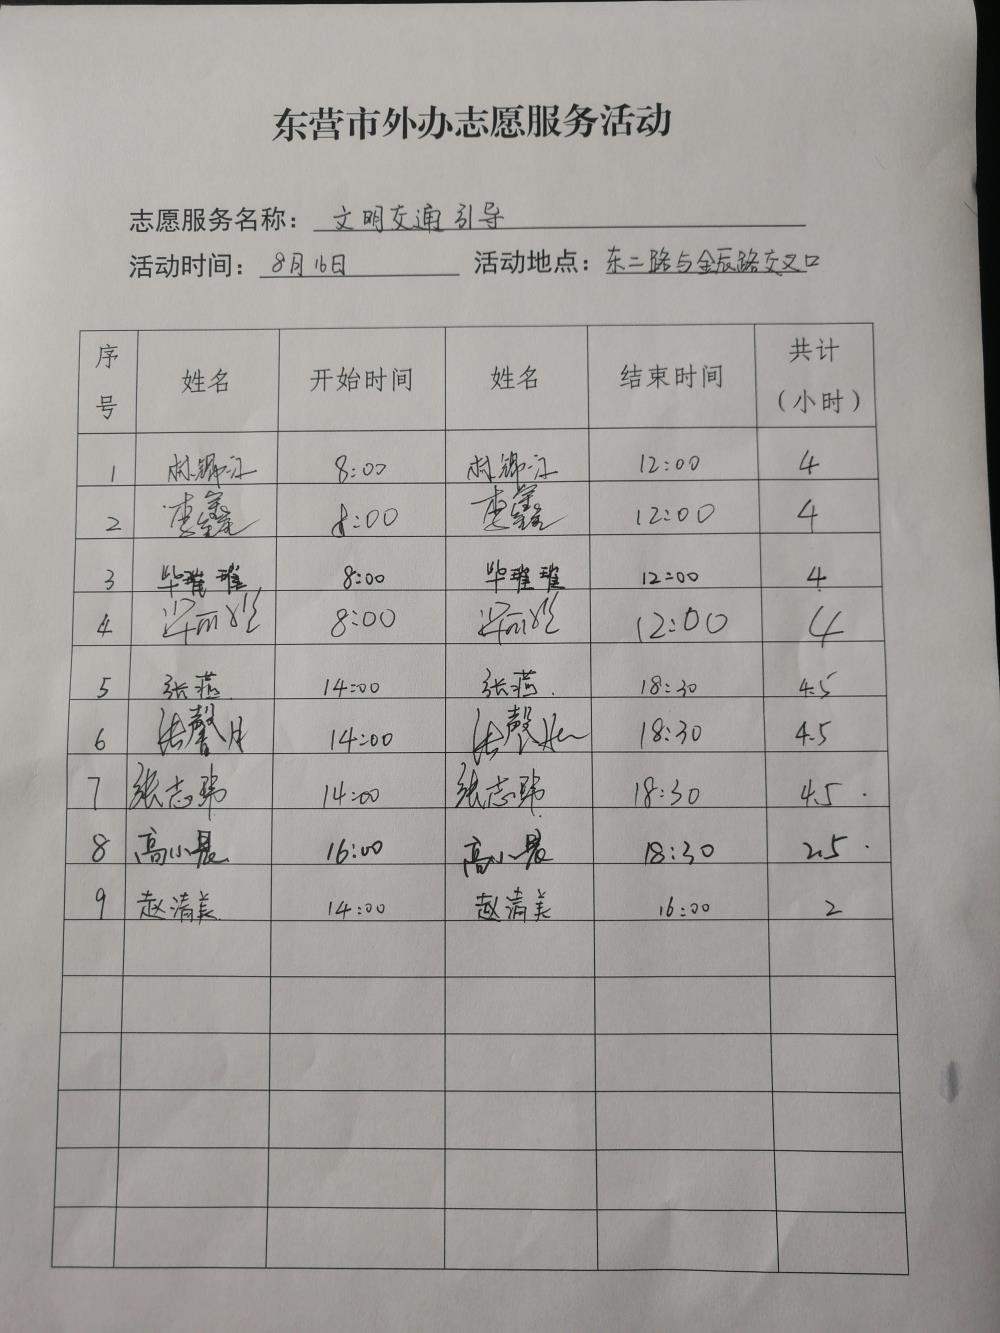 东营市外办志愿服务活动
志愿服务名称： 文明交通引导
活动时间： 8月16日 活动地点： 东二路与金辰路交叉口
序号 姓名 开始时间 姓名 结束时间 共计（小时）
1 8:00 12:00 4
2 李鑫 8:00 李鑫 12:00 4
3 毕璀璀 8:00 毕璀璀 12:00 4
4 8:00 12:00 4
5 张燕 14:00 张燕 18:30 4.5
6 14:00 18:30 4.5
7 张志玮 14:00 张志玮 18:30 4.5
8 高小晨 16:00 高小晨 18:30 2.5
9 赵清美 14:00 赵清美 16:00 2